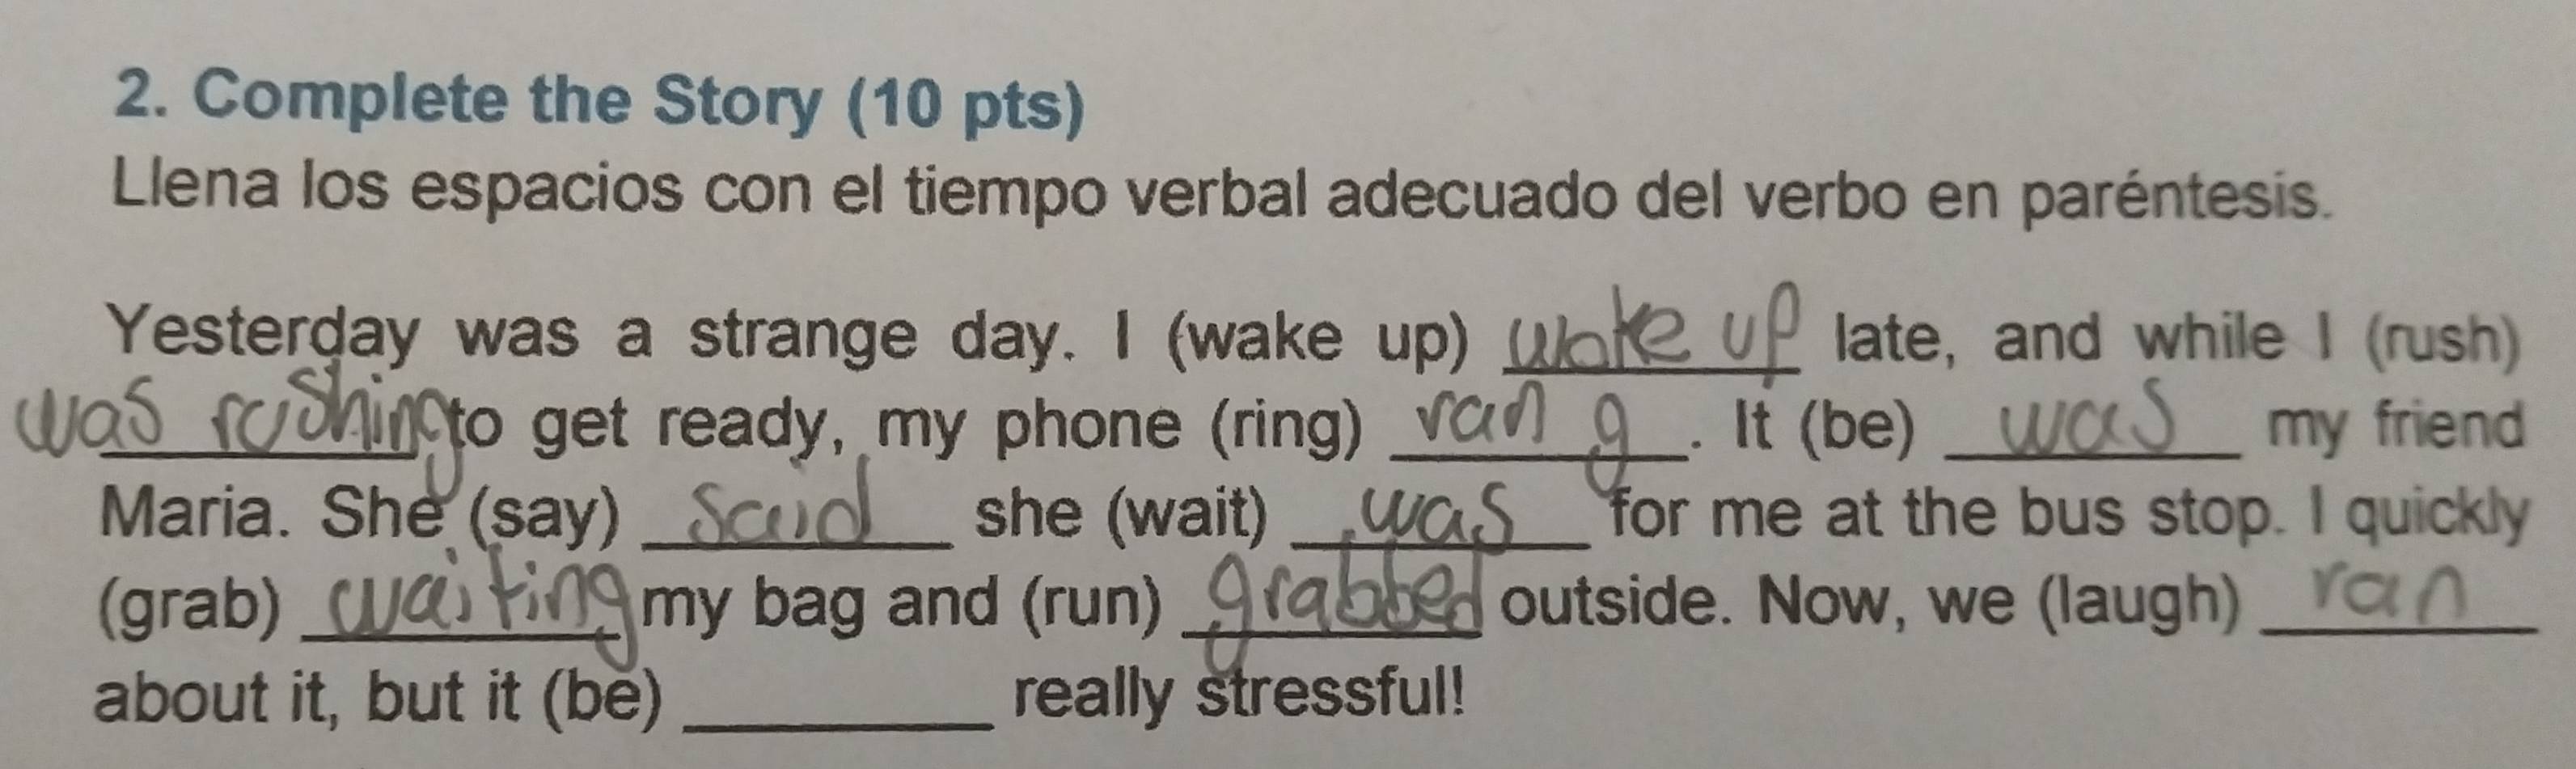 2. Complete the Story (10 pts)
Llena los espacios con el tiempo verbal adecuado del verbo en paréntesis.
Yesterday was a strange day. I (wake up) woke up late, and while I (rush)
was rushing to get ready, my phone (ring) rang. It (be) was my friend
Maria. She (say) said she (wait) was for me at the bus stop. I quickly
(grab) waiting my bag and (run) grabbed outside. Now, we (laugh) ran
about it, but it (be) __________ really stressful!